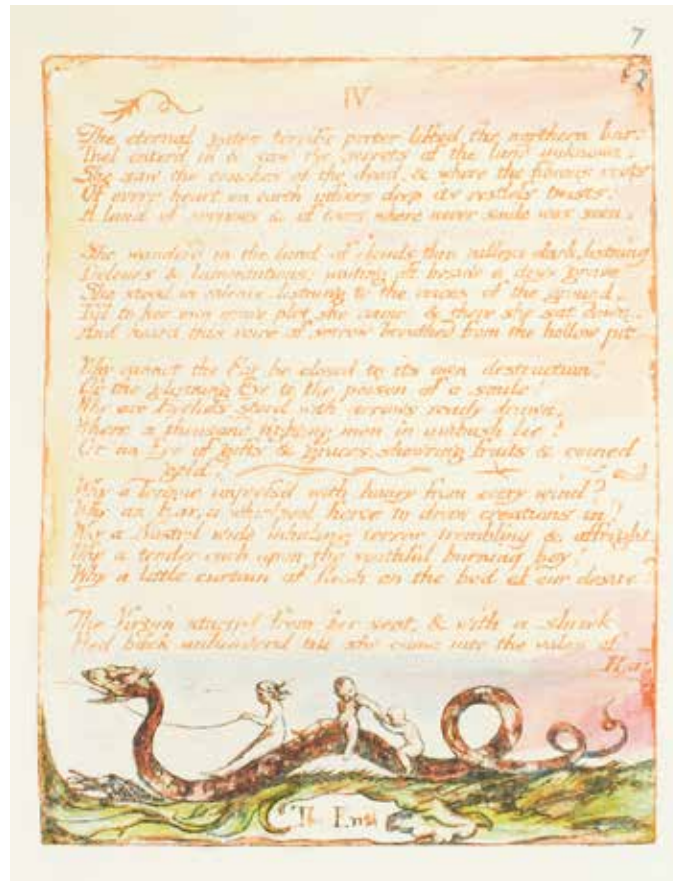 7
IV
The eternal gates terrific porter lifted the northern bar:
Thel enter'd in & saw the secrets of the land unknown:
She saw the couches of the dead, & where the fibrous roots
Of every heart on earth infixes deep its restless twists:
A land of sorrows & of tears where never smile was seen.
She wanderd in the land of clouds thro' valleys dark, listning
Dolours & lamentations: waiting oft beside a dewy grave
She stood in silence, listning to the voices of the ground,
Till to her own grave plot she came, & there she sat down.
And heard this voice of sorrow breathed from the hollow pit.
Why cannot the Ear be closed to its own destruction?
Or the glistning Eye to the poison of a smile!
Why are Eyelids stord with arrows ready drawn,
Where a thousand fighting men in ambush lie?
Or an Eye of gifts & graces, show'ring fruits & coined
gold!
Why a Tongue impress'd with honey from every wind?
Why an Ear, a whirlpool fierce to draw creations in?
Why a Nostril wide inhaling terror trembling & affright
Why a tender curb upon the youthful burning boy!
Why a little curtain of flesh on the bed of our desire?
The Virgin started from her seat, & with a shriek
Fled back unhinderd till she came into the vales of
Har
The End